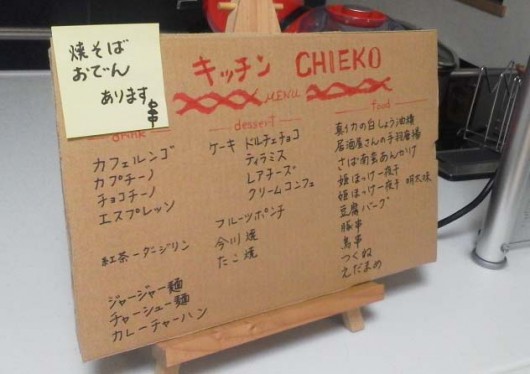 焼そば
おでん
あります
キッチン CHIEKO
MENU
drink
カフェルンゴ
カプチーノ
チョコチーノ
エスプレッソ
紅茶ーダージリン
ジャージャー麺
チャーシュー麺
カレーチャーハン
dessert
ケーキ ドルチェチョコ
ティラミス
レアチーズ
クリームコンフェ
フルーツポンチ
今川焼
たこ焼
food
真イカの白しょう油焼
居酒屋さんの手羽唐揚
さば南蛮あんかけ
姫ほっけ一夜干
姫ほっけ一夜干 明太味
豆腐バーグ
豚串
鳥串
つくね
えだまめ